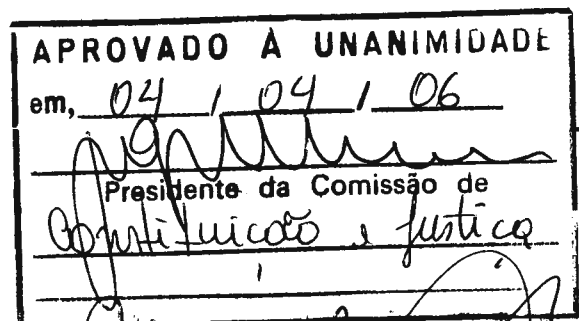 APROVADO A UNANIMIDADE
em, 04 / 04 / 06
Presidente da Comissão de
Constituicão e Justica